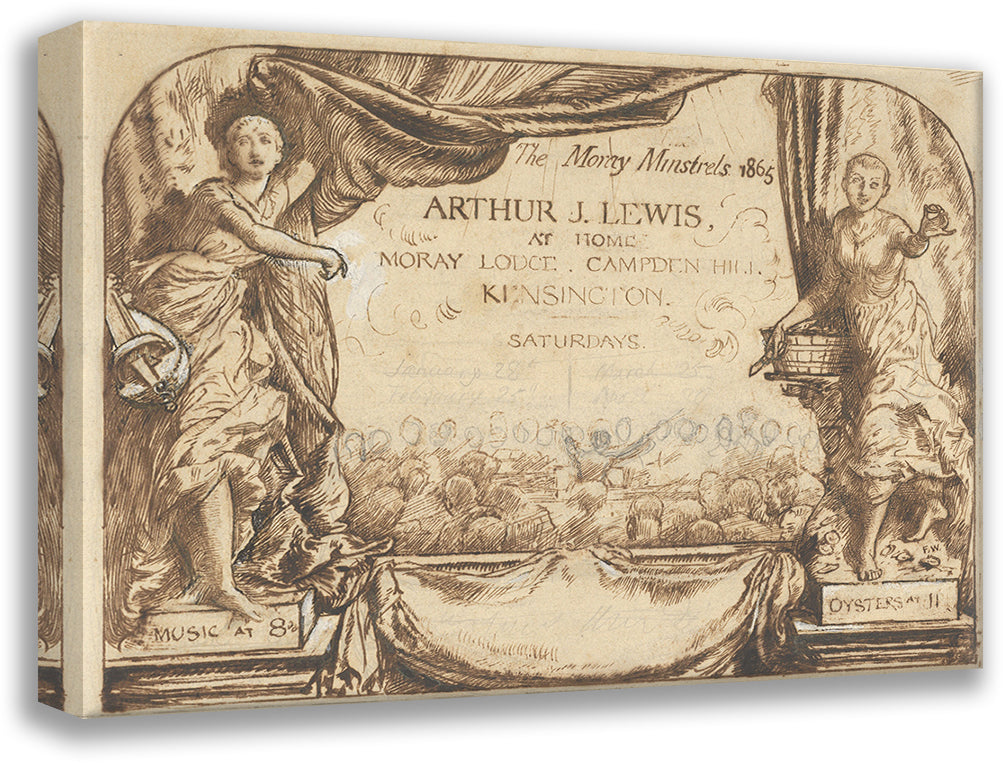 The Moray Minstrels 1865
ARTHUR J. LEWIS,
AT HOME
MORAY LODGE. CAMPDEN HILL.
KENSINGTON.
SATURDAYS.
January 28
March 25
February 25
MUSIC AT 8
OYSTERS AT 11
F.W